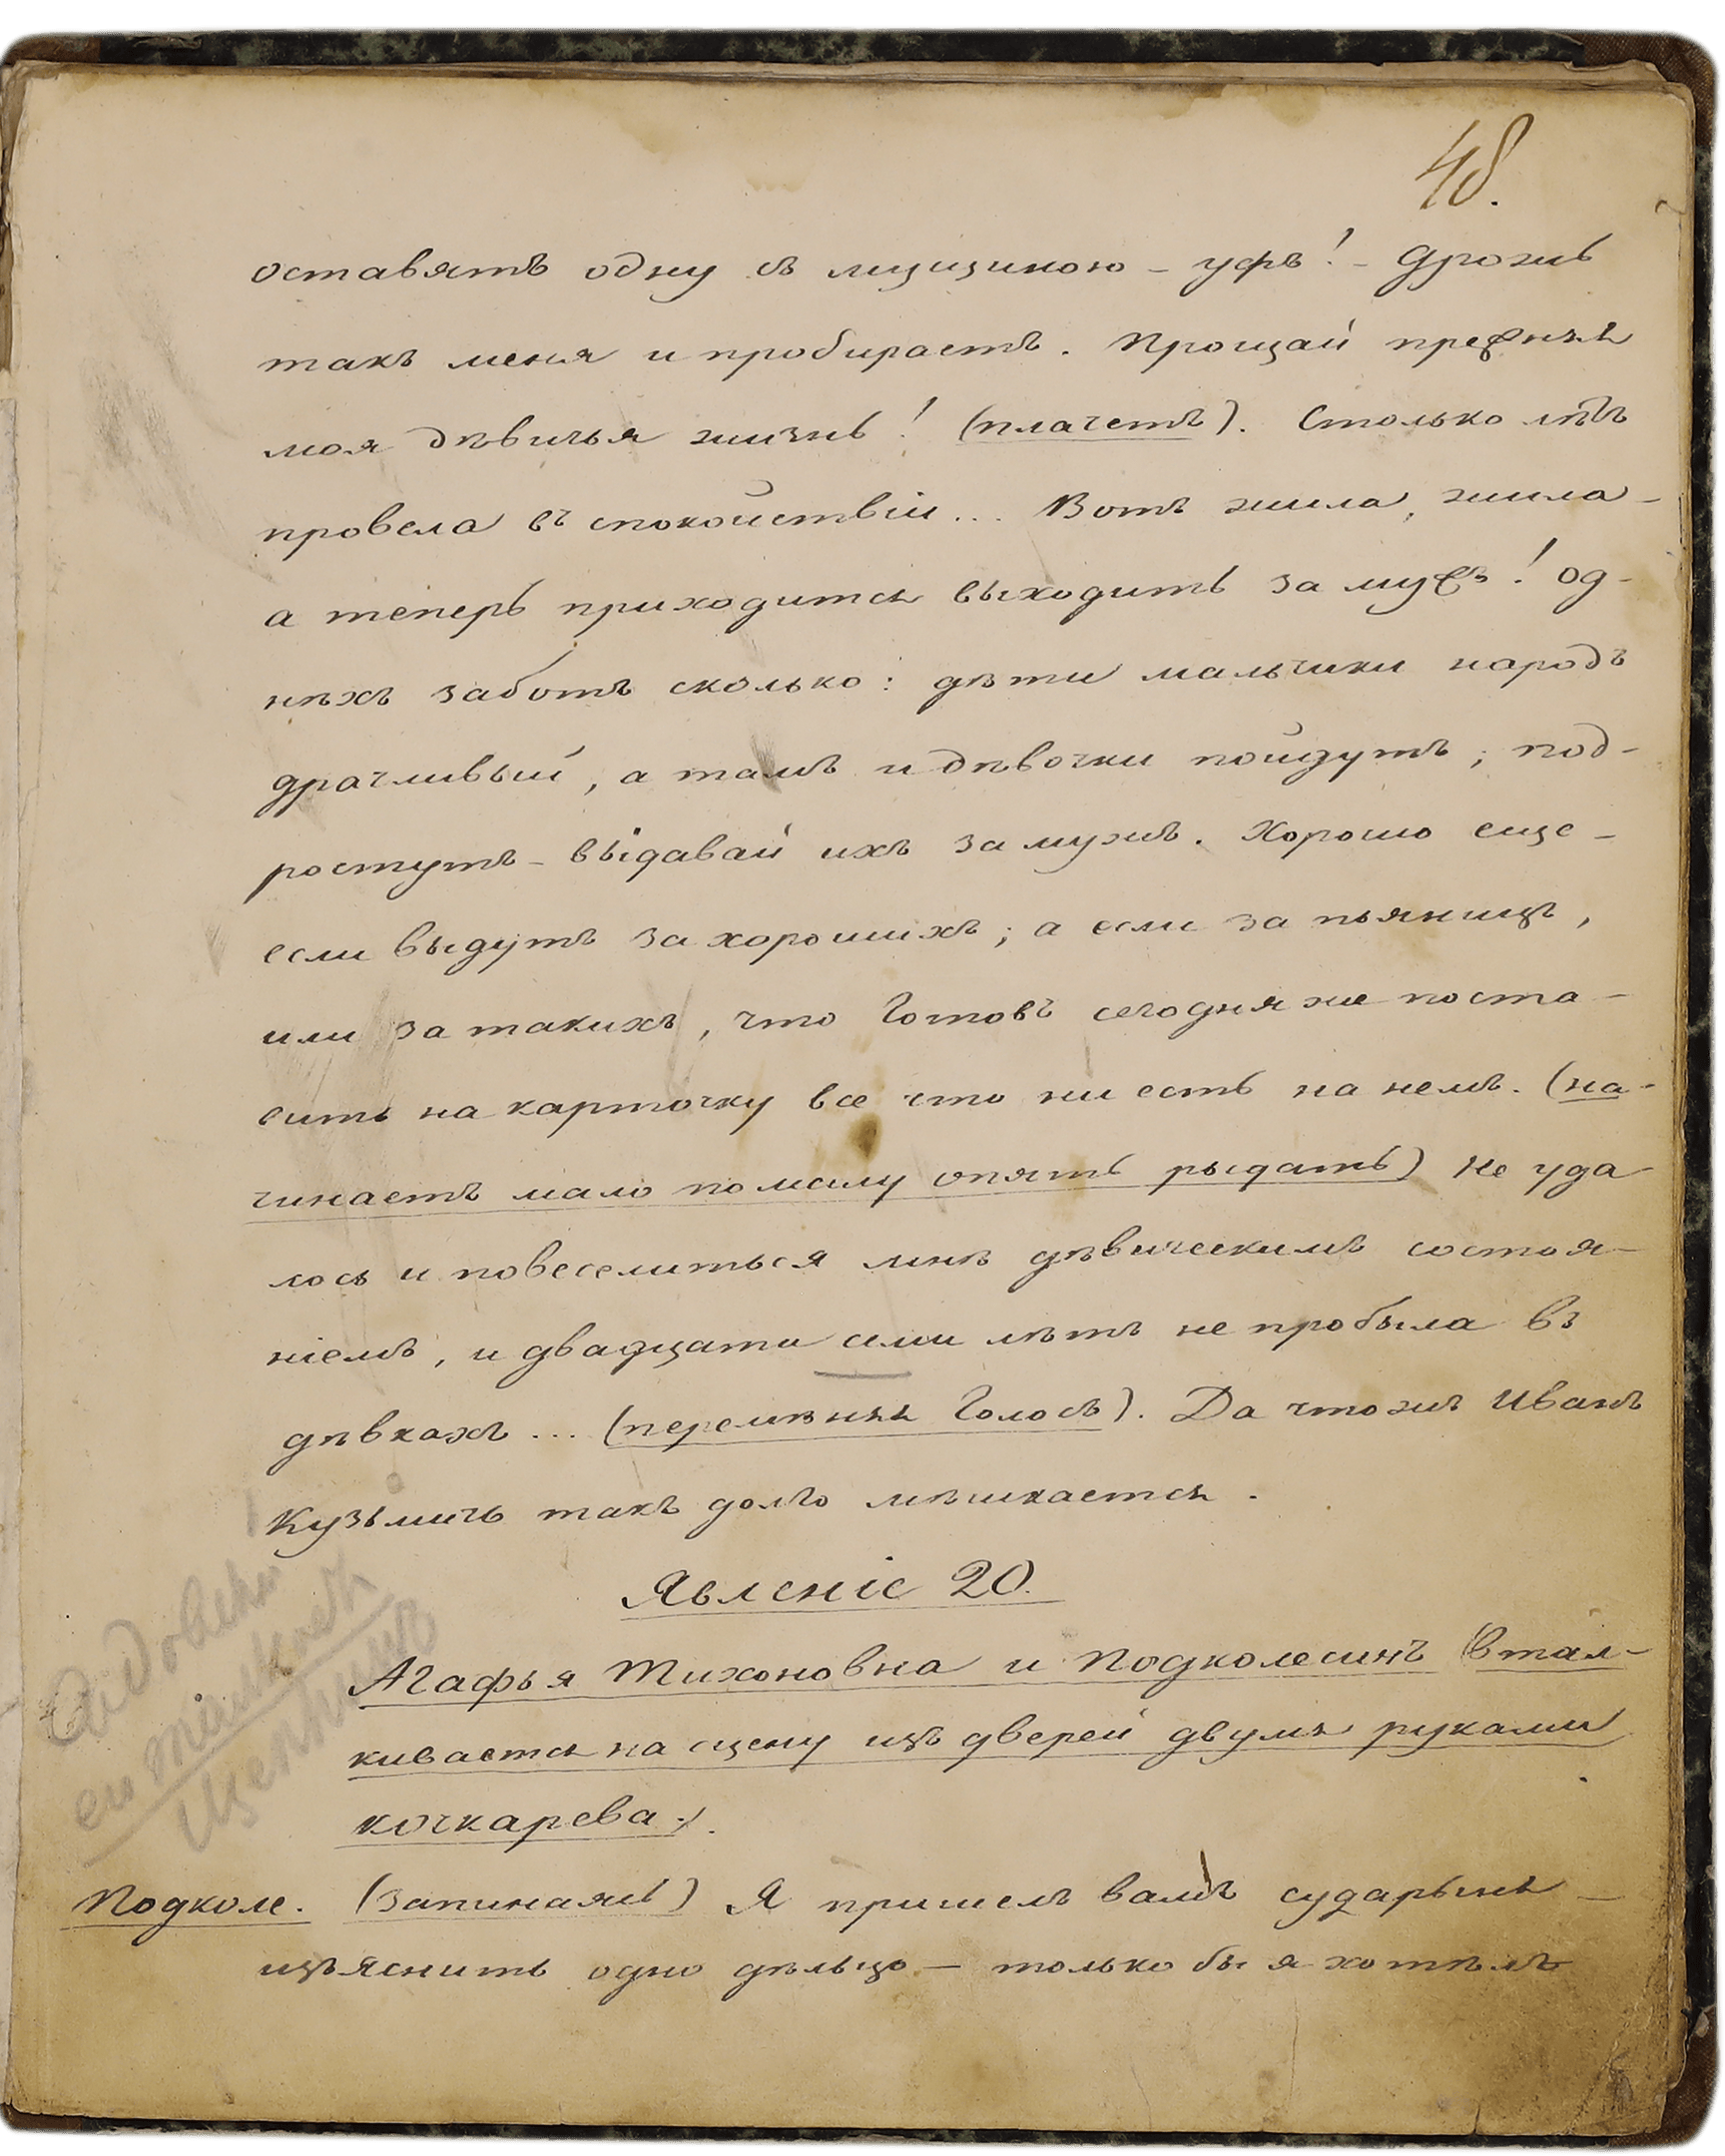 48.
оставятъ одну съ мущиною – уфъ! – Дрожь
такъ меня и пробираетъ. Прощай прежняя
моя дѣвичья жизнь! (плачетъ). Столько лѣтъ
провела въ спокойствіи... Вотъ жила, жила –
а теперь приходится выходить за мужъ! Од-
нѣхъ заботъ сколько: дѣти мальчики народъ
драчливый, а тамъ и дѣвочки пойдутъ; под-
ростутъ – выдавай ихъ за мужъ. Хорошо еще –
если выдутъ за хорошихъ; а если за пьяницъ,
или за такихъ, что готовъ сегодня же поста-
вить на карточку все что ни есть на немъ. (на-
чинаетъ мало по малу опять рыдать) Не уда-
лось и повеселиться мнѣ дѣвическимъ состоя-
ніемъ, и двадцати семи лѣтъ не пробыла въ
дѣвкахъ... (перемѣняя голосъ). Да что жъ Иванъ
Кузьмичъ такъ долго мѣшкается.
Явленіе 20.
Агафья Тихоновна и Подколесинъ (втал-
кивается на сцену изъ дверей двумя руками
Кочкарева).
Подколе. (запинаясь) Я пришелъ вамъ сударыня –
изъяснить одно дѣльцо – только бы я хотѣлъ